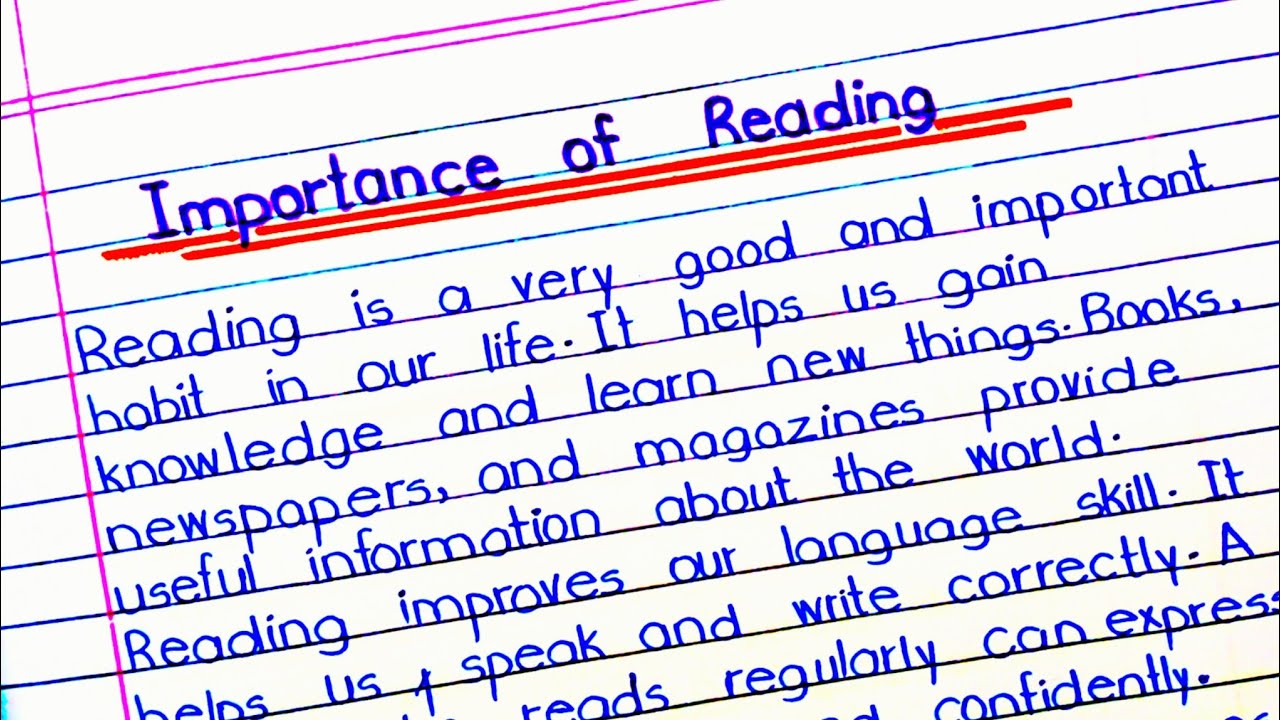 Importance of Reading
Reading is a very good and important
habit in our life. It helps us gain
knowledge and learn new things. Books,
newspapers, and magazines provide
useful information about the world.
Reading improves our language skill. It
helps us speak and write correctly. A
reads regularly can express
confidently.